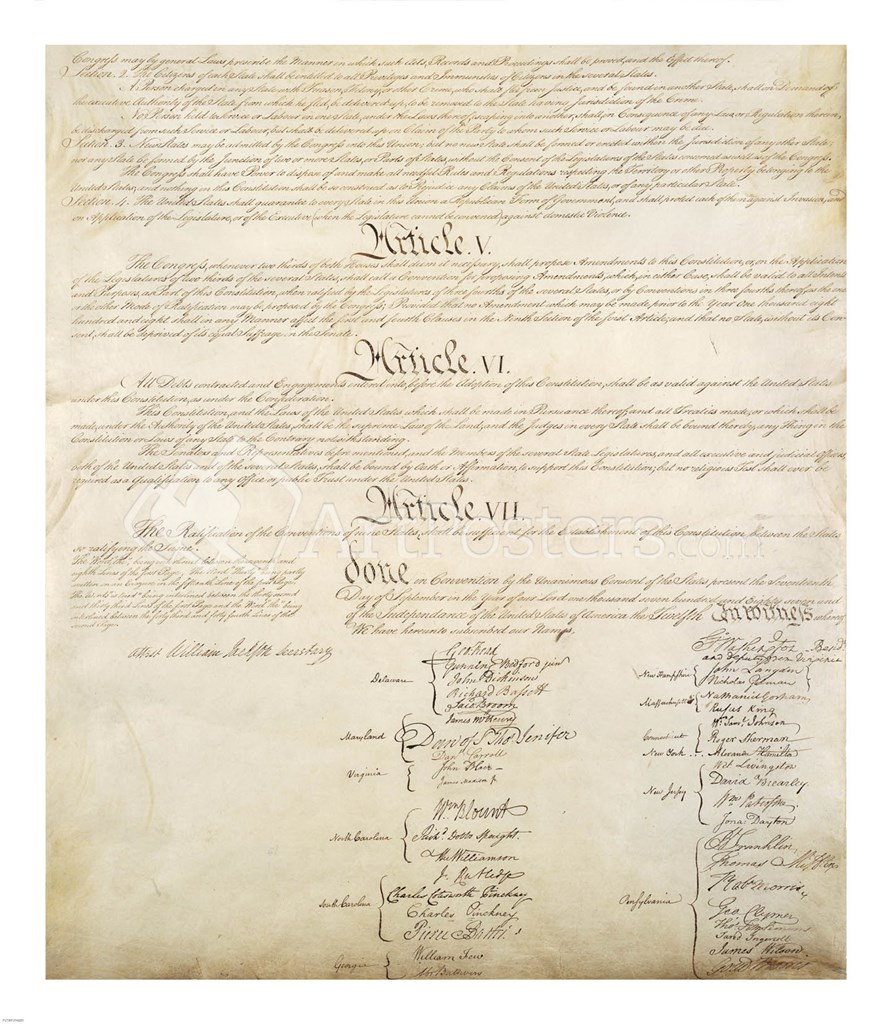 Congress may by general Laws prescribe the Manner in which such Acts, Records and Proceedings shall be proved, and the Effect thereof.
Section. 2. The Citizens of each State shall be entitled to all Privileges and Immunities of Citizens in the several States.
A Person charged in any State with Treason, Felony, or other Crime, who shall flee from Justice, and be found in another State, shall on Demand of
the executive Authority of the State from which he fled, be delivered up, to be removed to the State having Jurisdiction of the Crime.
No Person held to Service or Labour in one State, under the Laws thereof, escaping into another, shall, in Consequence of any Law or Regulation therein,
be discharged from such Service or Labour, but shall be delivered up on Claim of the Party to whom such Service or Labour may be due.
Section. 3. New States may be admitted by the Congress into this Union; but no new State shall be formed or erected within the Jurisdiction of any other State;
nor any State be formed by the Junction of two or more States, or Parts of States, without the Consent of the Legislatures of the States concerned as well as of the Congress.
The Congress shall have Power to dispose of and make all needful Rules and Regulations respecting the Territory or other Property belonging to the
United States; and nothing in this Constitution shall be so construed as to Prejudice any Claims of the United States, or of any particular State.
Section. 4. The United States shall guarantee to every State in this Union a Republican Form of Government, and shall protect each of them against Invasion; and
on Application of the Legislature, or of the Executive (when the Legislature cannot be convened) against domestic Violence.
Article. V.
The Congress, whenever two thirds of both Houses shall deem it necessary, shall propose Amendments to this Constitution, or, on the Application
of the Legislatures of two thirds of the several States, shall call a Convention for proposing Amendments, which, in either Case, shall be valid to all Intents
and Purposes, as Part of this Constitution, when ratified by the Legislatures of three fourths of the several States, or by Conventions in three fourths thereof, as the one
or the other Mode of Ratification may be proposed by the Congress; Provided that no Amendment which may be made prior to the Year One thousand eight
hundred and eight shall in any Manner affect the first and fourth Clauses in the Ninth Section of the first Article; and that no State, without its Con-
sent, shall be deprived of its equal Suffrage in the Senate.
Article. VI.
All Debts contracted and Engagements entered into, before the Adoption of this Constitution, shall be as valid against the United States
under this Constitution, as under the Confederation.
This Constitution, and the Laws of the United States which shall be made in Pursuance thereof; and all Treaties made, or which shall be
made, under the Authority of the United States, shall be the supreme Law of the Land; and the Judges in every State shall be bound thereby, any Thing in the
Constitution or Laws of any State to the Contrary notwithstanding.
The Senators and Representatives before mentioned, and the Members of the several State Legislatures, and all executive and judicial Officers,
both of the United States and of the several States, shall be bound by Oath or Affirmation, to support this Constitution; but no religious Test shall ever be
required as a Qualification to any Office or public Trust under the United States.
Article. VII.
The Ratification of the Conventions of nine States, shall be sufficient for the Establishment of this Constitution between the States
so ratifying the Same.
ArtPosters.com
done in Convention by the Unanimous Consent of the States present the Seventeenth
Day of September in the Year of our Lord one thousand seven hundred and Eighty seven and
of the Independance of the United States of America the Twelfth In Witness whereof
We have hereunto subscribed our Names,
The Word, "the," being interlined between the seventh and
eighth Lines of the first Page,
Attest William Jackson Secretary
Delaware
Geo: Read
Gunning Bedford jun
John Dickinson
Richard Bassett
Jaco: Broom
Maryland
James McHenry
Dan of St Thos. Jenifer
Danl Carroll
Virginia
John Blair—
James Madison Jr.
North Carolina
Wm Blount
Richd. Dobbs Spaight.
Hu Williamson
South Carolina
J. Rutledge
Charles Cotesworth Pinckney
Charles Pinckney
Pierce Butler.
Georgia
William Few
Abr Baldwin
Go. Washington—Presidt.
and deputy from Virginia
New Hampshire
John Langdon
Nicholas Gilman
Massachusetts
Nathaniel Gorham
Rufus King
Connecticut
Wm. Saml. Johnson
Roger Sherman
New York
Alexander Hamilton
New Jersey
Wil: Livingston
David Brearley.
Wm. Paterson.
Jona: Dayton
Pensylvania
B Franklin
Thomas Mifflin
Robt Morris
Geo. Clymer
Thos. FitzSimons
Jared Ingersoll
James Wilson.
Gouv Morris